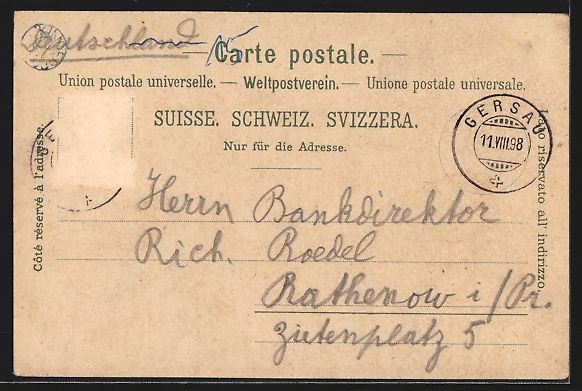 Deutschland 15
Carte postale.
Union postale universelle. — Weltpostverein. — Unione postale universale.
SUISSE. SCHWEIZ. SVIZZERA.
Nur für die Adresse.
Côté réservé à l'adresse.
Lato riservato all' indirizzo.
GERSAU
11.VIII.98
GE
Herrn Bankdirektor
Rich. Roedel
Rathenow i/Pr.
Zietenplatz 5